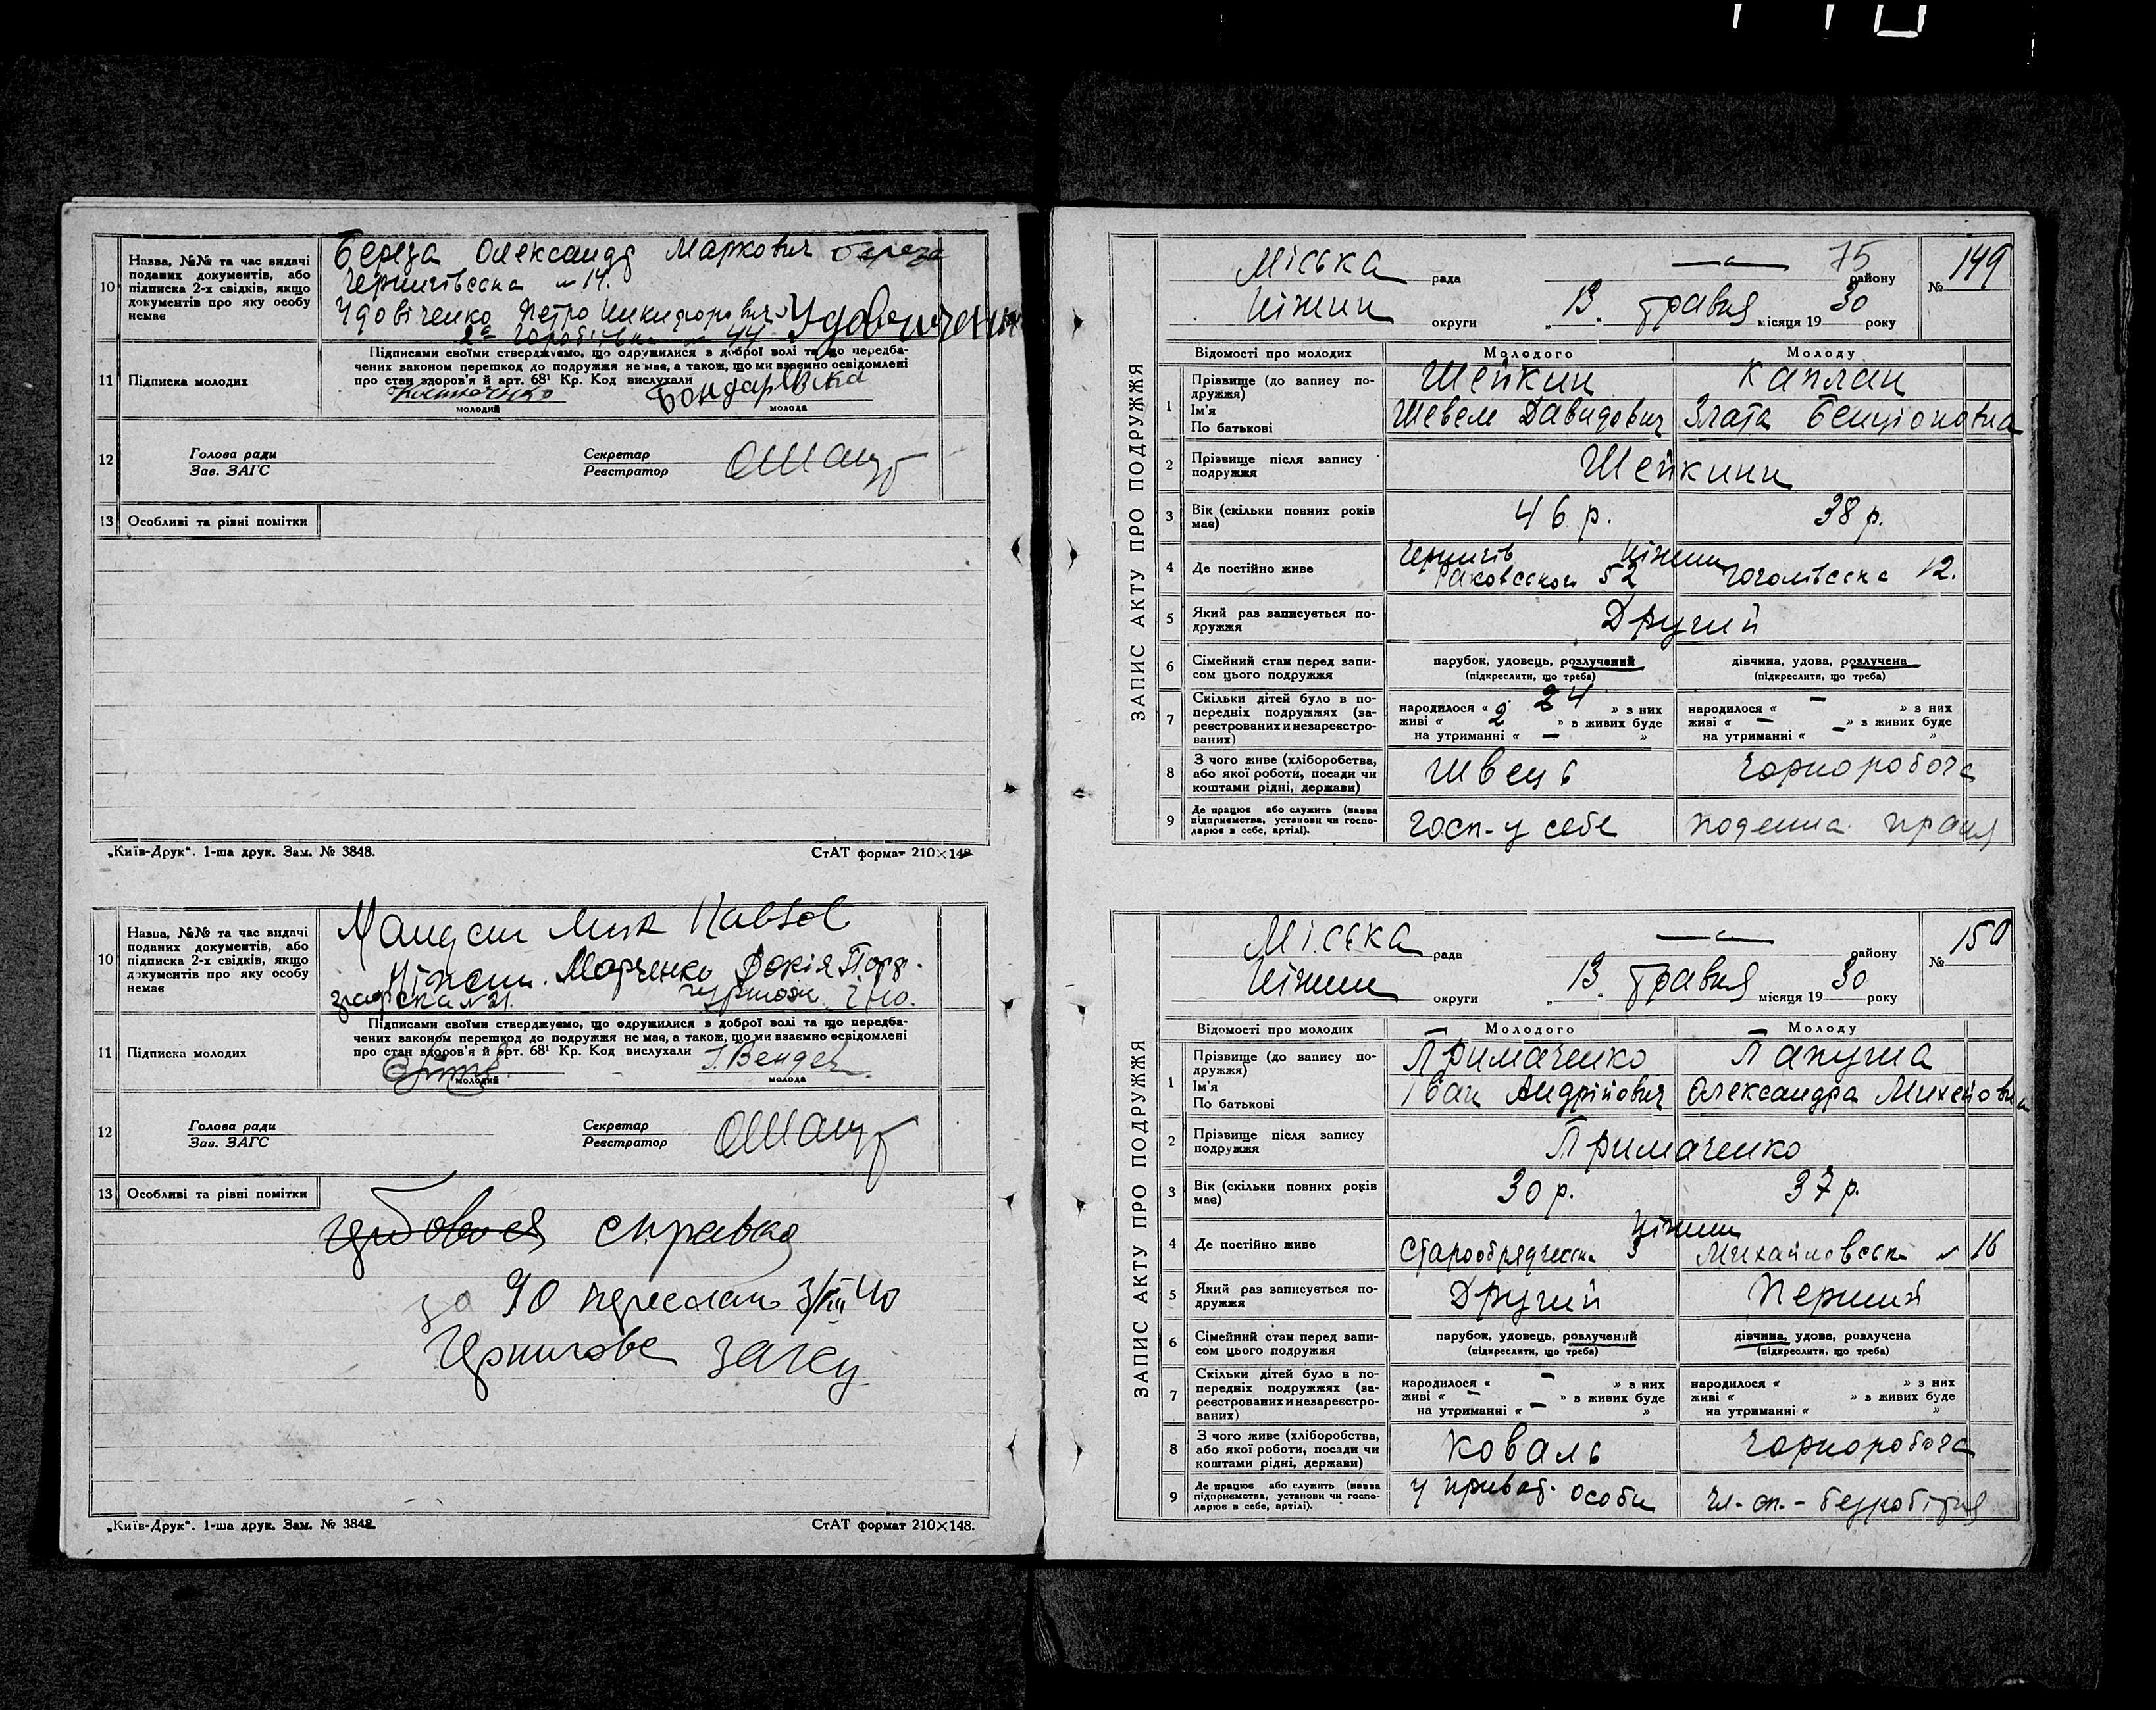 10 Назва, №№ та час видачі
поданих документів, або
підписка 2-х свідків, якщо
документів про яку особу
немає
Береза Олександр Маркович Береза
Чернигівська № 14.
Удовіченко Петро Никифорович Удовиченко
2а Горобіївка № 44
Підписами своїми стверджуємо, що одружилися з доброї волі та що передба-
чених законом перешкод до подружжя немає, а також, що ми взаємно освідомлені
про стан здоров'я й арт. 68¹ Кр. Код вислухали
11 Підписка молодих
Бондаревска
молодий молода
12 Голова ради Секретар
Зав. ЗАГС Реєстратор
13 Особливі та рівні помітки
„Київ-Друк“. 1-ша друк. Зам. № 3848. СтАТ формат 210×148.
10 Назва, №№ та час видачі
поданих документів, або
підписка 2-х свідків, якщо
документів про яку особу
немає
Ніжин. Марченко Докія
№ 21.
Підписами своїми стверджуємо, що одружилися з доброї волі та що передба-
чених законом перешкод до подружжя немає, а також, що ми взаємно освідомлені
про стан здоров'я й арт. 68¹ Кр. Код вислухали
11 Підписка молодих
молодий молода
12 Голова ради Секретар
Зав. ЗАГС Реєстратор
13 Особливі та рівні помітки
справка
за 90 3/VIII 40
загсу
„Київ-Друк“. 1-ша друк. Зам. № 3848 СтАТ формат 210×148.
ЗАПИС АКТУ ПРО ПОДРУЖЖЯ
75
Міська рада району № 149
Ніжин округи „13„ травня місяця 1930 року
Відомості про молодих Молодого Молоду
1 Прізвище (до запису по-
дружжя)
Ім'я
По батькові
Шейкин Каплан
Шевель Давидович Злата Бенціоновна
2 Прізвище після запису
подружжя
Шейкини
3 Вік (скільки повних років
має)
46 р. 38 р.
4 Де постійно живе
Чернигів Ніжин
Раковської 52 Гоголівська 12.
5 Який раз записується по-
дружжя
Другий
6 Сімейний стан перед запи-
сом цього подружжя
парубок, удовець, розлучений дівчина, удова, розлучена
(підкреслити, що треба) (підкреслити, що треба)
7 Скільки дітей було в по-
передніх подружжях (за-
реєстрованих и незареєстро-
ваних)
народилося « 4 » з них народилося « — » з них
живі « 2 » з живих буде живі « — » з живих буде
на утриманні « — » на утриманні « — »
8 З чого живе (хліборобства,
або якої роботи, посади чи
коштами рідні, держави)
Швець Чорноробоча
9 Де працює або служить (назва
підприємства, установи чи госпо-
дарює в себе, артілі).
Госп-у себе поденна праця
ЗАПИС АКТУ ПРО ПОДРУЖЖЯ
Міська рада району № 150
Ніжин округи „13„ травня місяця 1930 року
Відомості про молодих Молодого Молоду
1 Прізвище (до запису по-
дружжя)
Ім'я
По батькові
Примаченко Папуша
Іван Андрійович Олександра Михейовна
2 Прізвище після запису
подружжя
Примаченко
3 Вік (скільки повних років
має)
30 р. 37 р.
4 Де постійно живе
Ніжин
Старообрядческа 3 Михайловськ № 16
5 Який раз записується по-
дружжя
Другий Перший
6 Сімейний стан перед запи-
сом цього подружжя
парубок, удовець, розлучений дівчина, удова, розлучена
(підкреслити, що треба) (підкреслити, що треба)
7 Скільки дітей було в по-
передніх подружжях (за-
реєстрованих и незареєстро-
ваних)
народилося « — » з них народилося « » з них
живі « — » з живих буде живі « » з живих буде
на утриманні « — » на утриманні « »
8 З чого живе (хліборобства,
або якої роботи, посади чи
коштами рідні, держави)
Коваль Чорноробоча
9 Де працює або служить (назва
підприємства, установи чи госпо-
дарює в себе, артілі).
У приват. особи чл. сп. - безробітня